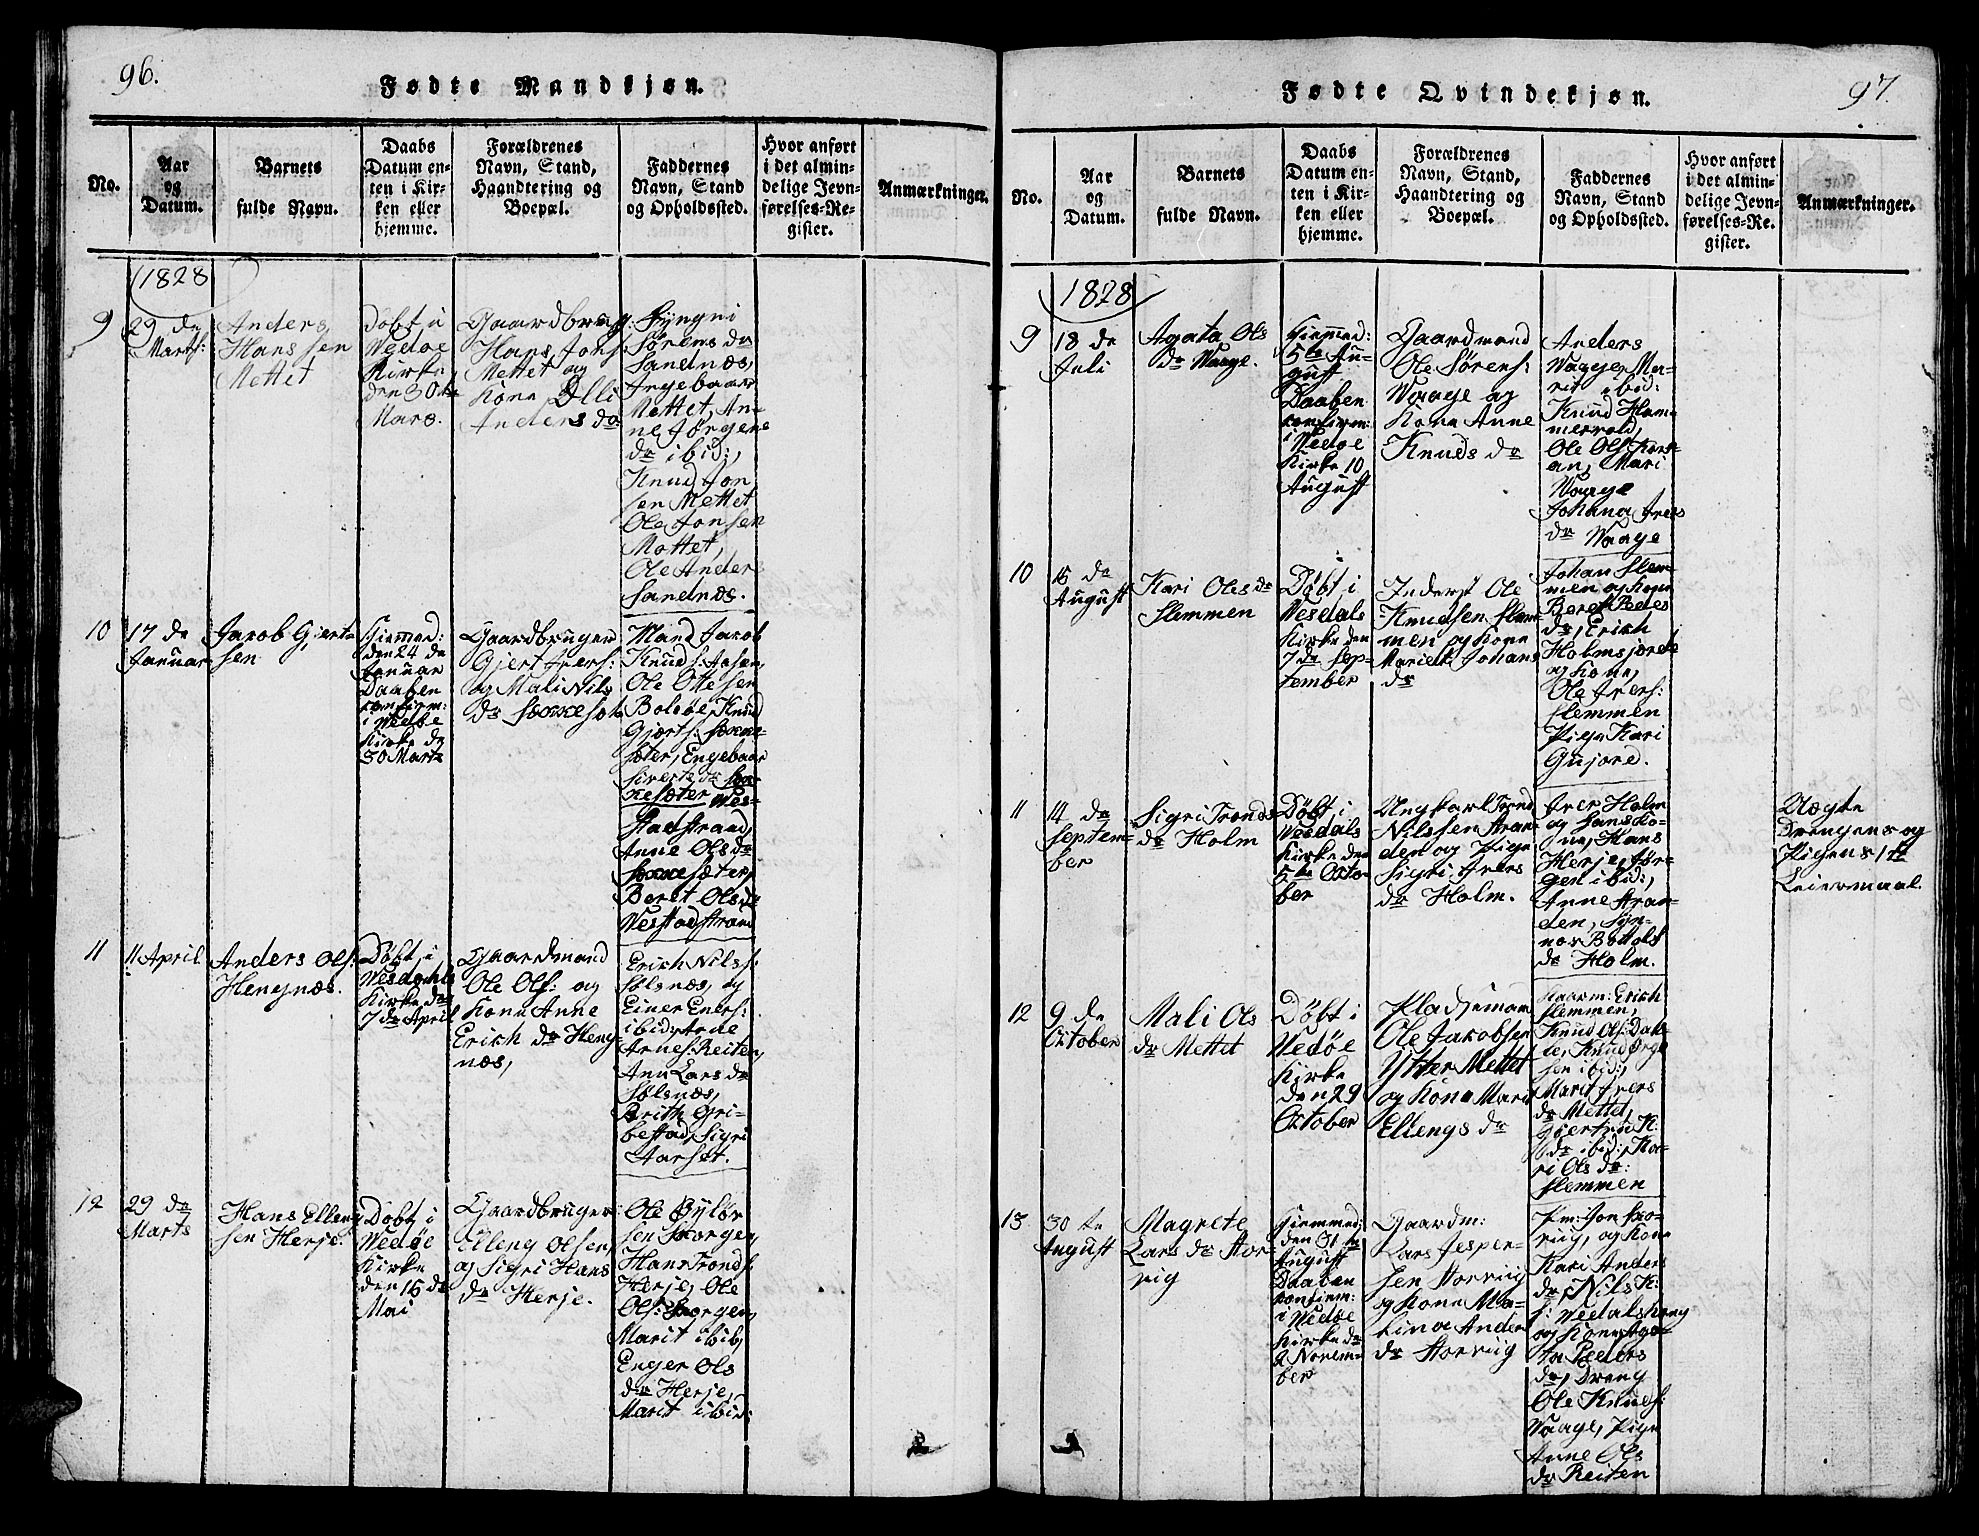 96.
Fødte Mandkjøn.
No.
Aar
og
Datum.
Barnets
fulde Navn.
Daabs
Datum en-
ten i Kir-
ken eller
hjemme.
Forældrenes
Navn, Stand,
Haandtering og
Boepæl.
Faddernes
Navn, Stand
og Opholdssted.
Hvor anført
i det almin-
delige Jevn-
førelses-Re-
gister.
Anmærkninger.
1828
9
29 de
Marts:
Anders
Hanssen
Mettet
Døbt i
Wedøe
Kirke
den 30te
Mars.
Gaardbrug:
Hans Jons:
Mettet og
Kone Olli
Anders dr
Syngni
Sørens dr
Sandnæs,
Ingebaar
Mettet, An-
ne Jørgens
dr ibid:,
Knud Jon
sen Mettet
Ole Jonsen
Mettet,
Ole Anders
Sandnæs.
10
17 de
Januar
Jacob Gjert
sen
Hjemmed:
den 24 de
Januar
Daaben
confirm:
i Wedøe
Kirke de
30 Marts
Gaardbruger
Gjert Ivers:
og Mali Nils
dr
Mand Jacob
Knuds:
Ole Ottesen
Bolsøe, Knud
Gjerts:
sæter, Engebaar
Siverts dr
sæter Wes-
stadstrand,
Anne Ols dr
Beret Ols dr
Westadstrand
11
11 April
Anders Ols:
Hengnæs.
Døbt i
Wesdahls
Kirke de
7 de April
Gaardmand
Ole Ols: og
Kone Anne
Erich dr Heng
næs,
Erich Nils:
Sølsnæs, og
Einer Eners:
ibid: Arne
Arnes: Reiten,
Ane Lars dr
Sølsnæs,
Brith Gri-
bestad, Sigri
Aarset.
12
29 de
Marts
Hans Elleng
sen Herje.
Døbt i
Wedøe
Kirke
den 16 de
Mai
Gaardbruger
Elleng Olsen,
og Sigri Hans
dr Herje.
Ole
sen
Hans Tronds:
Herje, Ole
Ols:
Marit ibid,
Enger Ols
dr Herje,
Marit ibid:
97.
Fødte Qvindekjøn.
No.
Aar
og
Datum.
Barnets
fulde Navn.
Daabs
Datum en-
ten i Kir-
ken eller
hjemme.
Forældrenes
Navn, Stand,
Haandtering og
Boepæl.
Faddernes
Navn, Stand
og Opholdssted.
Hvor anført
i det almin-
delige Jevn-
førelses-Re-
gister.
Anmærkninger.
1828
9
18 de
Juli
Agata Ols
dr Waage.
Hjemmed:
5te Au-
gust
Daaben
confirm:
i Wedøe
Kirke 10
August
Gaardmand
Ole Sørens:
Waage og
Kone Anne
Knuds dr
Anders
Waage, Ma-
rit ibid:
Knud Ham
mervold,
Ole Ols:
Mari
Waage
Johana Ivers
dr Waage
10
15 de
August
Kari Oles dr
Flemmen
Døbt i
Wesdals
Kirke den
7 de Sep-
tember
Inderst Ole
Knudsen Flem
men og Kone
Marieth Johans
dr
Johan Flem-
men og Kone
Beret Peders
dr, Erich
Holmsjorde
og Kone,
Ole Ivers:
Flemmen
Pige Kari
Gujord.
11
14 de
Septem-
ber
Sigri Tronds
dr Holm
Døbt i
Wesdals
Kirke den
5te Octo-
ber
Ungkarl Trond
Nilssen Stran-
den og Pige
Sigri Ivers
dr Holm.
Iver Holm
og Hans Ko-
ne, Hans
Herje, Jør-
gen ibid:,
Anne Stran-
den, Syn-
nov Bottols
dr Holm.
Uægte
Drengens og
Pigens 1ste
Leiermaal.
12
9 de
October
Mali Ols
dr Mettet
Døbt i
Wedøe
Kirke
den 29
October
Pladsemand
Ole Jacobsen
Ytter Mettet
og Kone Marit
Ellengs dr
Gaarm: Erich
Flemmen,
Knud Ols:
sen ibid:,
Marit Ivers
dr Mettet,
Gjertrud K:
dr ibid:, Ka-
ri Ols dr:
Flemmen
13
30 te
August
Magrete
Lars dr Stor-
vig
Hjemmed:
den 31 te
August
Daaben
confirm:
i Wedøe
Kirke de
2 Novem-
ber
Gaardm:
Lars Jesper-
sen Storvig
og Kone Ma-
Anders
dr Storvig
Pm: Jon Sto-
rvig, og Kone
Kari Anders
dr, Nils K:
s: Wedalshoug
og Kone Aga-
ta Peders
dr, Dreng
Ole Knuds:
Waage, Pige
Anne Ols
dr Reiten